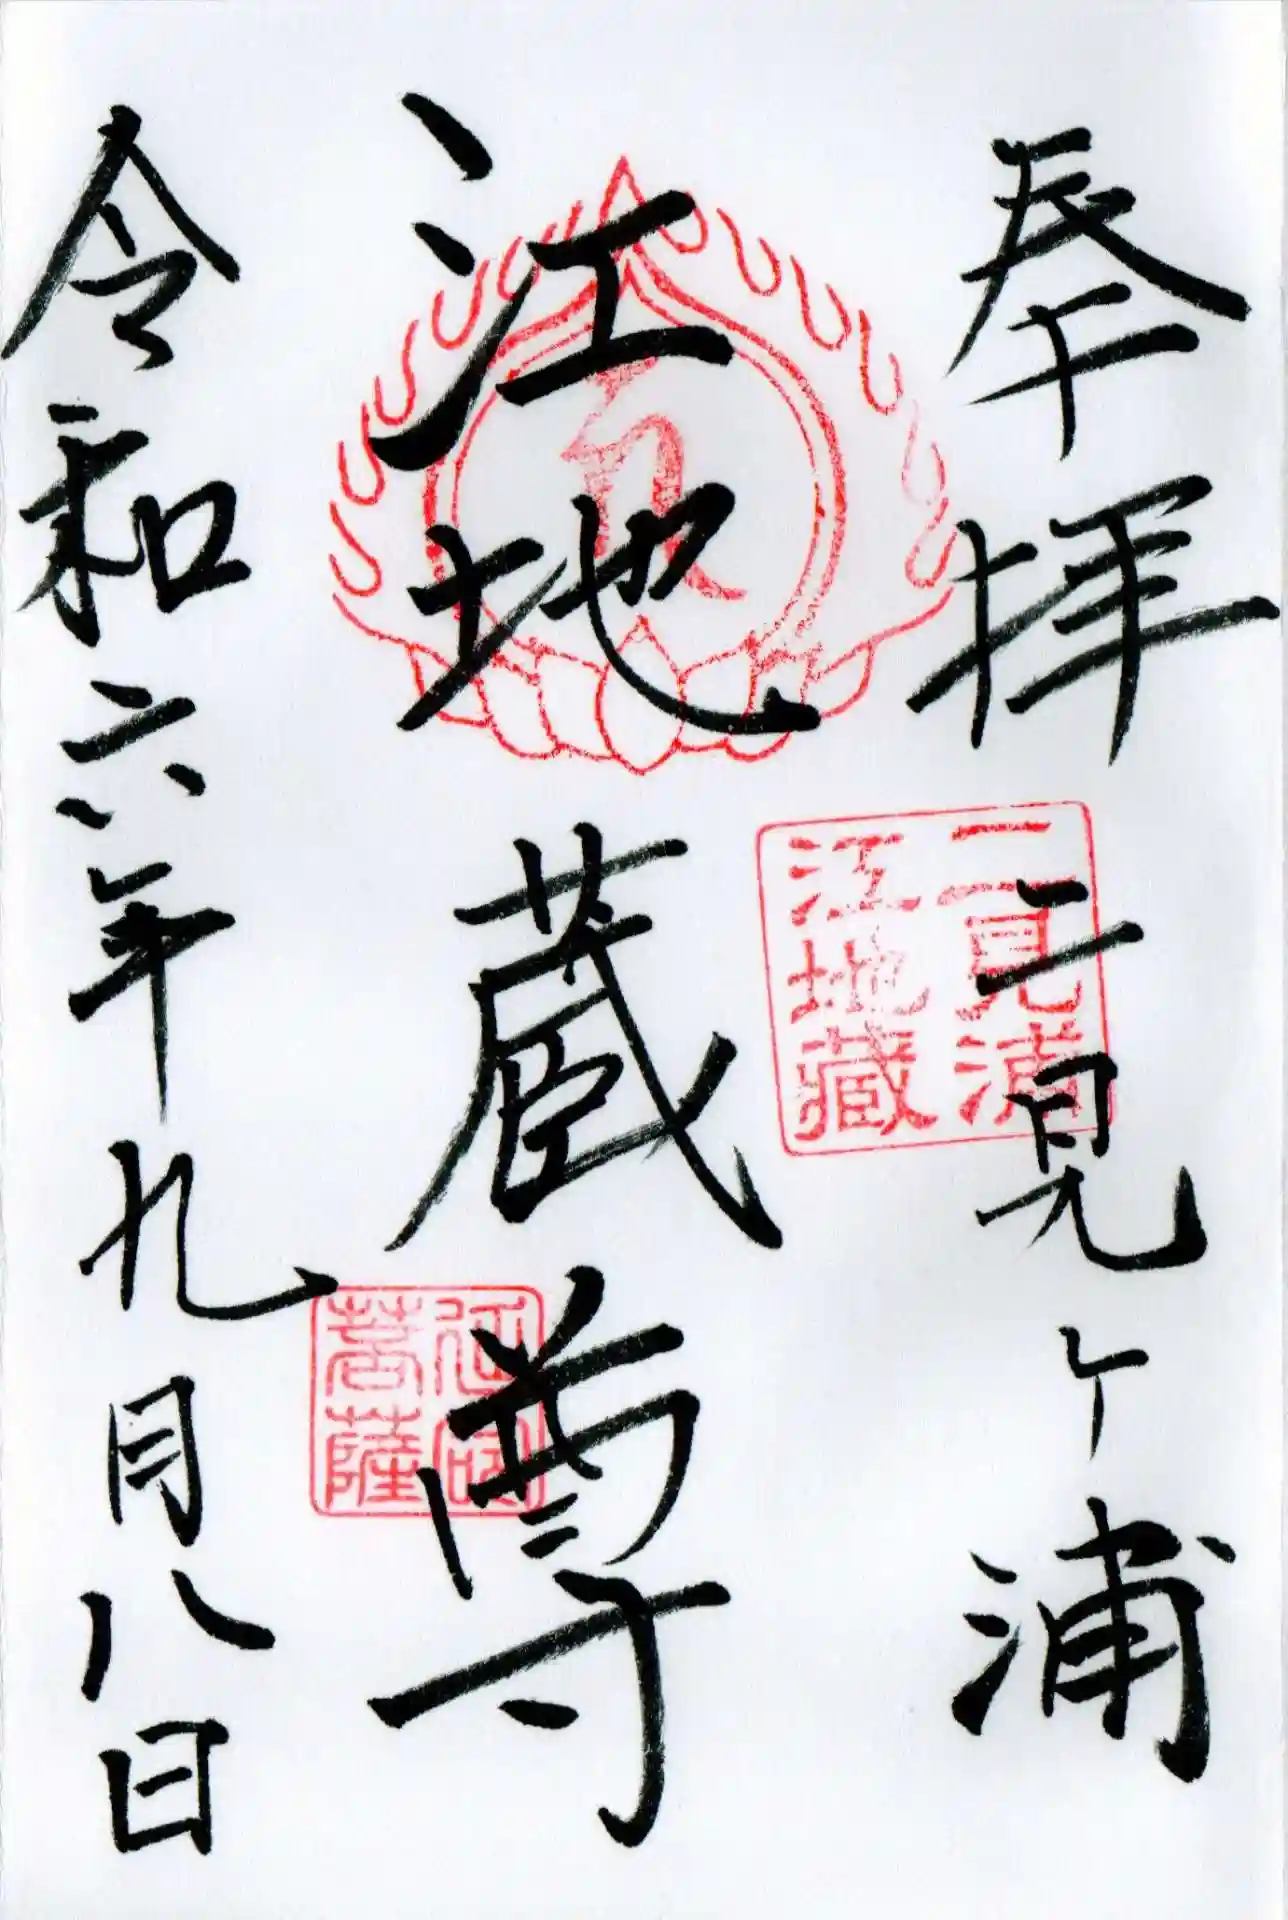 奉拝 二見ヶ浦
二見浦
江地蔵
江地蔵尊
菩薩
令和六年九月八日